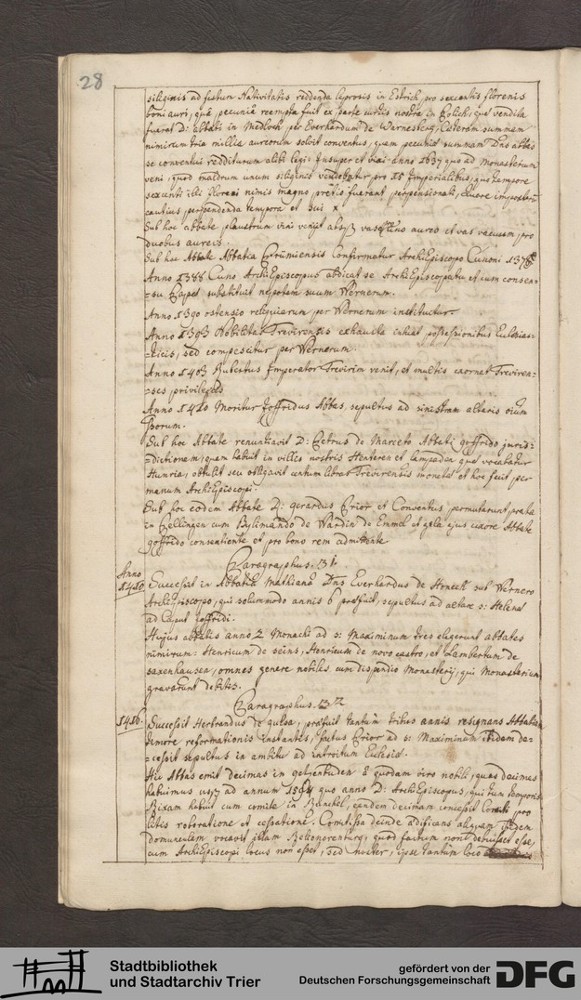 28
siliginis ad festum Nativitatis reddenda leprosis in Estrich, pro sexcentis florenis
boni auri, quæ pecunia reempta fuit ex parte curtis nostræ in Polich, quæ vendita
fuerat D: Abbati in Medloch, per Everhardum de Warnesberg, cæteram summam
nimirum tria millia aureorum solvit conventus, quam pecuniæ summam Dns abbas
se conventui redditurum alibi legi: Insuper et viai anno 1637 quo ad Monasterium
veni, quod maldrum unum siliginis vendebatur pro 15 Imperialibus, quo tempore
sexcenti illi floreni nimis magno pretio fuerant
cautius perpendenda tempora et sui x
Sub hoc abbate, plaustrum vini venijt absq vase uno aureo et vas vacuum pro
duobus aureis
Sub hoc Abbate Abbatia Prumiensis Confirmatur ArchiEpiscopo Cunoni 1378
Anno 1388 Cuno ArchiEpiscopus abdicat se ArchiEpiscopatu et cum consen-
=su Capel substituit nepotem suum Wernerum.
Anno 1390 ostensio reliquiarum per Wernerum instituitur.
Anno 1393 Nobilitas Trevirensis exhausta inhiat possessionibus Ecclesia-
=sticis, sed compescitur per Wernerum.
Anno 1403 Rubertus Imperator Trevirim venit, et multis exornat Treviren-
=ses privilegiis
Anno 1410 Moritur Joffridus Abbas, sepultus ad sinistram altaris oium
Storum.
Sub hoc Abbate renuntiavit D: Petrus de Marceto Abbati goffrido juris-
=dictionem, quam habuit in villis nostris Hentern et Lampaden quæ vocabatur
Hunria, obtulit seu obligavit centum libras Trevirensis monetæ et hoc fuit per
manum ArchiEpiscopi.
Sub hoc eodem Abbate D: gerardus Prior et Conventus permutarunt prata
in Pellingen cum Rylimando de Wardin de Emmel et ejus uxore Abbate
goffrido consentiente et pro bono rem admittente
Paragraphus. 31.
Anno
1410
Successit in Abbatia Mathiana Dns Everhardus de Honeck sub Wernero
ArchiEpiscopo, qui solummodo annis 6 præfuit, sepultus ad altare S: Helenæ
ad caput Joffridi.
Hujus abbatis anno 2 Monachi ad S: Maximinum tres elegerunt abbates
nimirum: Henricum de seins, Henricum de novo castro, et Lambertum de
saxenhausen, omnes genere nobiles cum dispendio Monasterij, qui Monasterium
gravarunt debitis.
Paragraphus. 32
1416.
Successit Herbrandus de gulsa, præfuit tantum tribus annis resignans Abbatiam
timore reformationis instantis, factus Prior ad S: Maximinum ibidem de-
=cessit sepultus in ambitu ad introitum Ecclesiæ.
Hic Abbas emit decimas in gelzenluden à quodam viro nobili, quas decimas
habuimus usq ad annum 1584 quo anno D: ArchiEpiscopus, qui tum temporis
Rixam habuit cum comite in Manchel, eandem decimam concessit Comiti pro
litis roboratione et cessatione. Comitissa deinde ædificans aliquam ibidem
domunculam vocavit illam Belionorenburg, quod factum non debuisset esse,
cum ArchiEpiscopi locus non esset, sed noster, ipse tantum loco
Stadtbibliothek
und Stadtarchiv Trier
gefördert von der
Deutschen Forschungsgemeinschaft
DFG